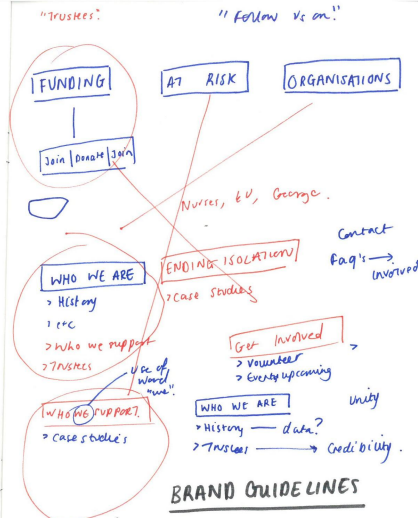 "Trustees."
"Follow Us on."
FUNDING
AT RISK
ORGANISATIONS
Join | Donate | Join
Nurses, EU, George.
Contact
Faq's → involved
WHO WE ARE
> History
> etc
> Who we support
> Trustees
ENDING ISOLATION
> Case Studies
Get Involved
> Volunteer
> Events upcoming
>
use of word "we".
WHO WE SUPPORT.
> Case studies
WHO WE ARE
> History — data?
> Trustees → Credibility.
Unity
BRAND GUIDELINES